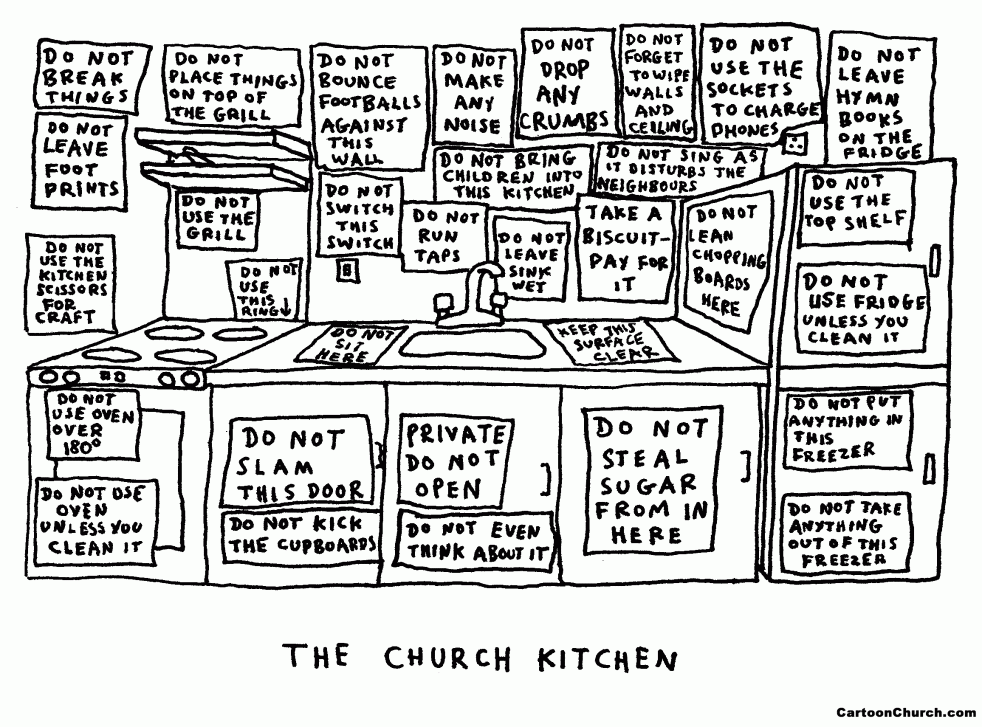 DO NOT
BREAK
THINGS
DO NOT
PLACE THINGS
ON TOP OF
THE GRILL
DO NOT
BOUNCE
FOOTBALLS
AGAINST
THIS
WALL
DO NOT
MAKE
ANY
NOISE
DO NOT
DROP
ANY
CRUMBS
DO NOT
FORGET
TO WIPE
WALLS
AND
CEILING
DO NOT
USE THE
SOCKETS
TO CHARGE
PHONES
DO NOT
LEAVE
HYMN
BOOKS
ON THE
FRIDGE
DO NOT
LEAVE
FOOT
PRINTS
DO NOT
USE THE
GRILL
DO NOT
SWITCH
THIS
SWITCH
DO NOT BRING
CHILDREN INTO
THIS KITCHEN
DO NOT SING AS
IT DISTURBS THE
NEIGHBOURS
DO NOT
RUN
TAPS
DO NOT
LEAVE
SINK
WET
TAKE A
BISCUIT-
PAY FOR
IT
DO NOT
LEAN
CHOPPING
BOARDS
HERE
DO NOT
USE THE
TOP SHELF
DO NOT
USE THE
KITCHEN
SCISSORS
FOR
CRAFT
DO NOT
USE
THIS
RING↓
DO NOT
SIT
HERE
KEEP THIS
SURFACE
CLEAR
DO NOT
USE FRIDGE
UNLESS YOU
CLEAN IT
DO NOT
USE OVEN
OVER
180°
DO NOT USE
OVEN
UNLESS YOU
CLEAN IT
DO NOT
SLAM
THIS DOOR
DO NOT KICK
THE CUPBOARDS
PRIVATE
DO NOT
OPEN
DO NOT EVEN
THINK ABOUT IT
DO NOT
STEAL
SUGAR
FROM IN
HERE
DO NOT PUT
ANYTHING IN
THIS
FREEZER
DO NOT TAKE
ANYTHING
OUT OF THIS
FREEZER
THE CHURCH KITCHEN
CartoonChurch.com